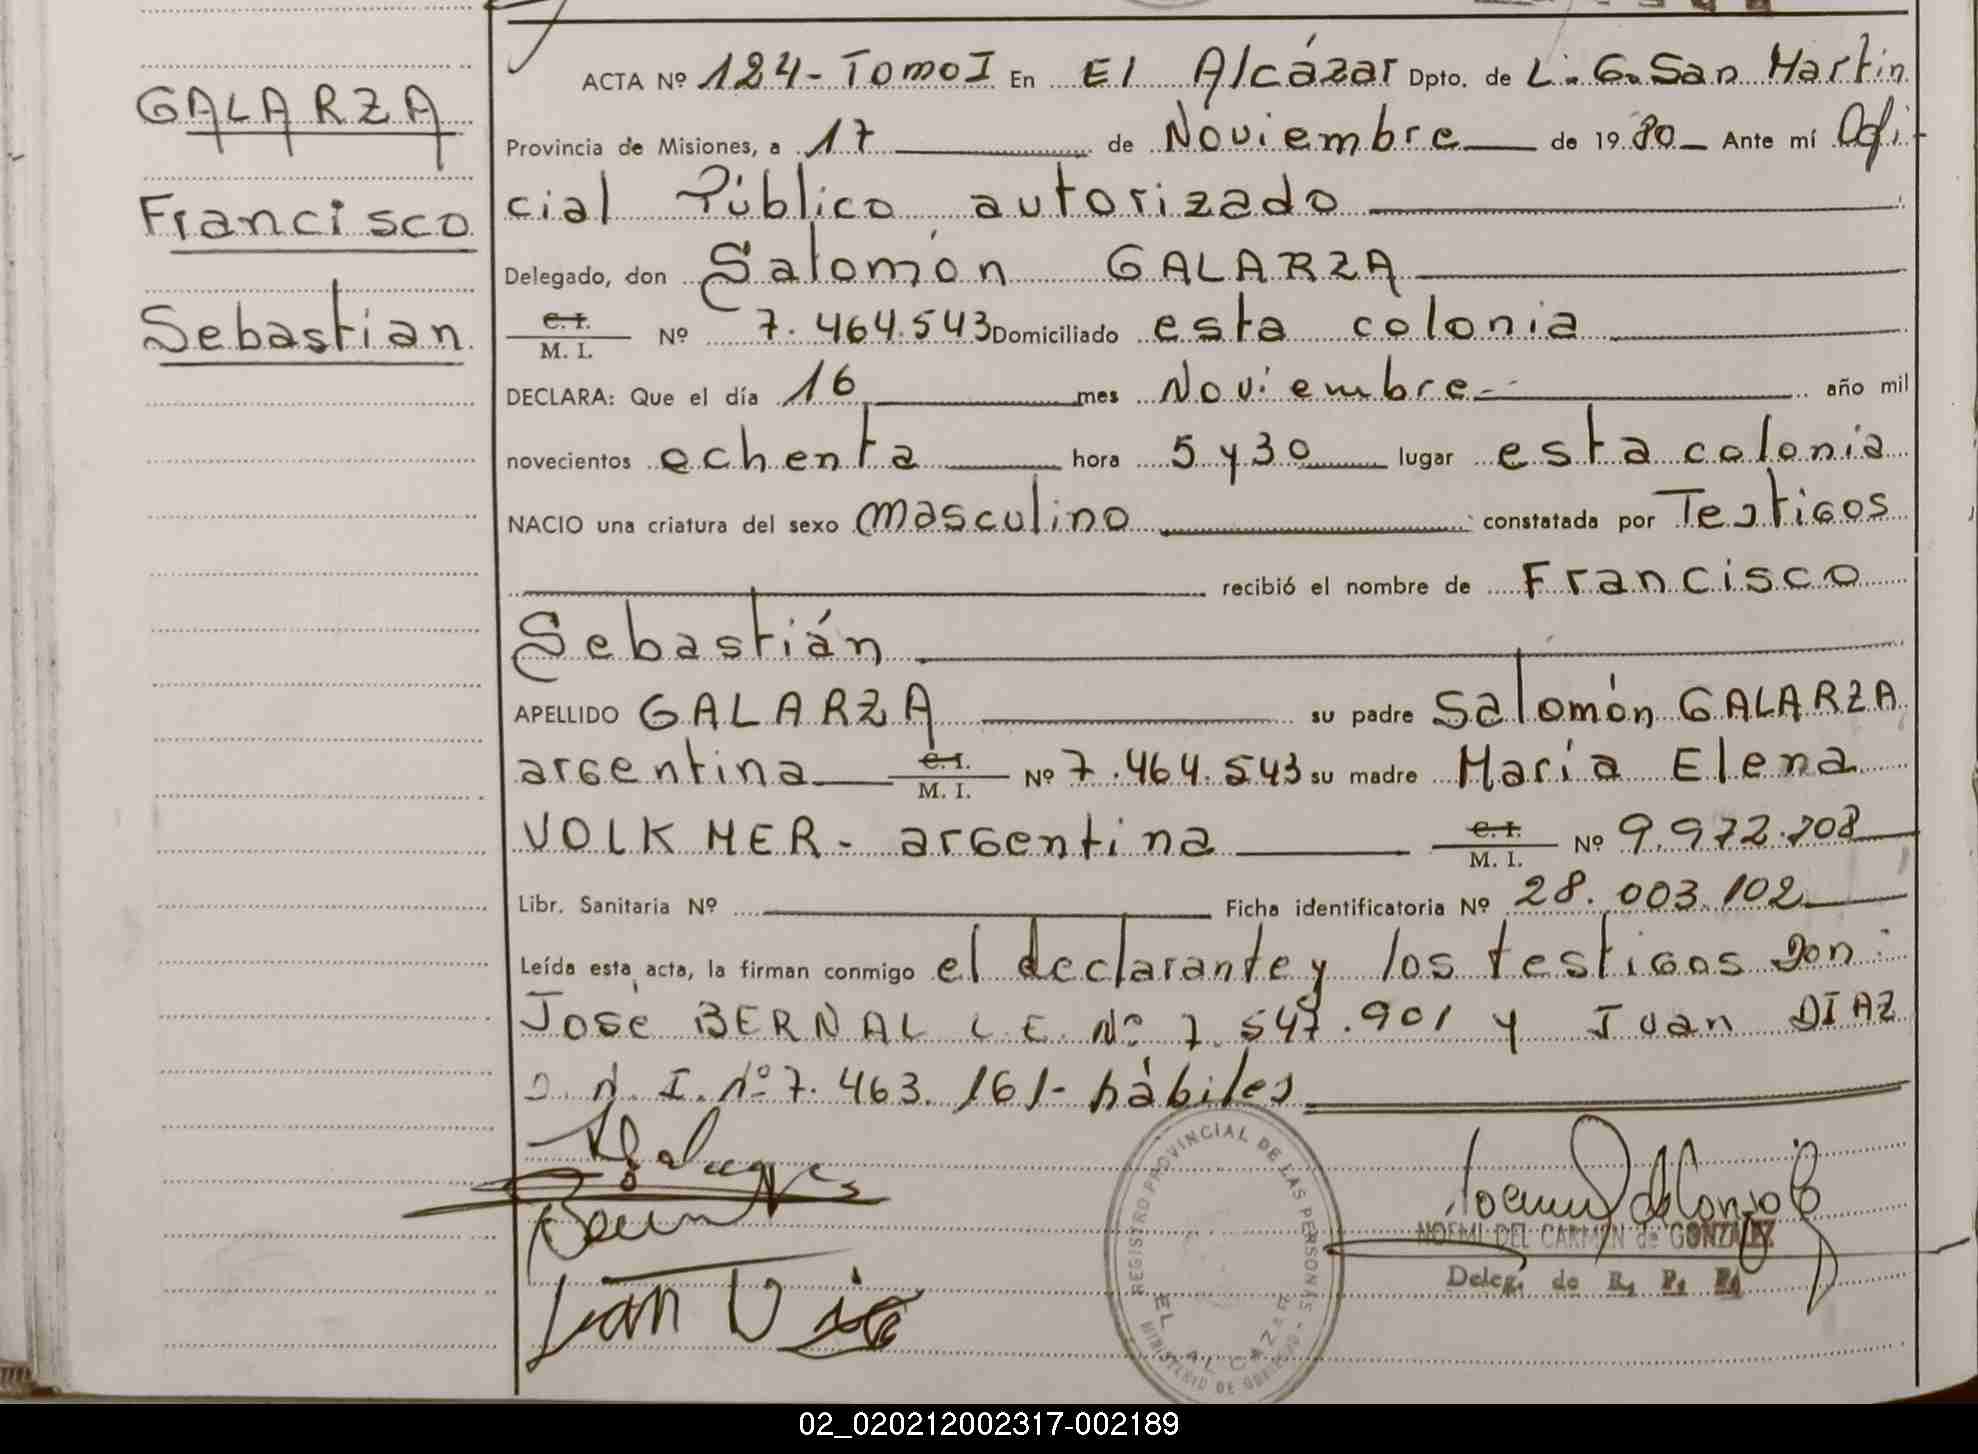 GALARZA
Francisco
Sebastian
ACTA Nº 124- Tomo I En El Alcázar Dpto. de L. G. San Martin
Provincia de Misiones, a 17 de Noviembre de 1980 Ante mí Ofi-
cial Público autorizado
Delegado, don Salomón GALARZA
C. I. / M. I. Nº 7.464.543 Domiciliado esta colonia
DECLARA: Que el día 16 mes Noviembre año mil
novecientos ochenta hora 5 y 30 lugar esta colonia
NACIO una criatura del sexo masculino constatada por Testigos
recibió el nombre de Francisco
Sebastián
APELLIDO GALARZA su padre Salomón GALARZA
argentina C. I. / M. I. Nº 7.464.543 su madre María Elena
VOLKMER - argentina C. I. / M. I. Nº 9.972.708
Libr. Sanitaria Nº Ficha identificatoria Nº 28.003.102
Leída esta acta, la firman conmigo el declarante y los testigos Don:
José BERNAL L.E. Nº 7.547.901 y Juan DIAZ
D.N.I. nº 7.463.161- hábiles
REGISTRO PROVINCIAL DE LAS PERSONAS
EL ALCAZAR
MINISTERIO DE GOBIERNO
NOEMI DEL CARMEN de GONZALEZ
Deleg. de R. P. P.
02_020212002317-002189